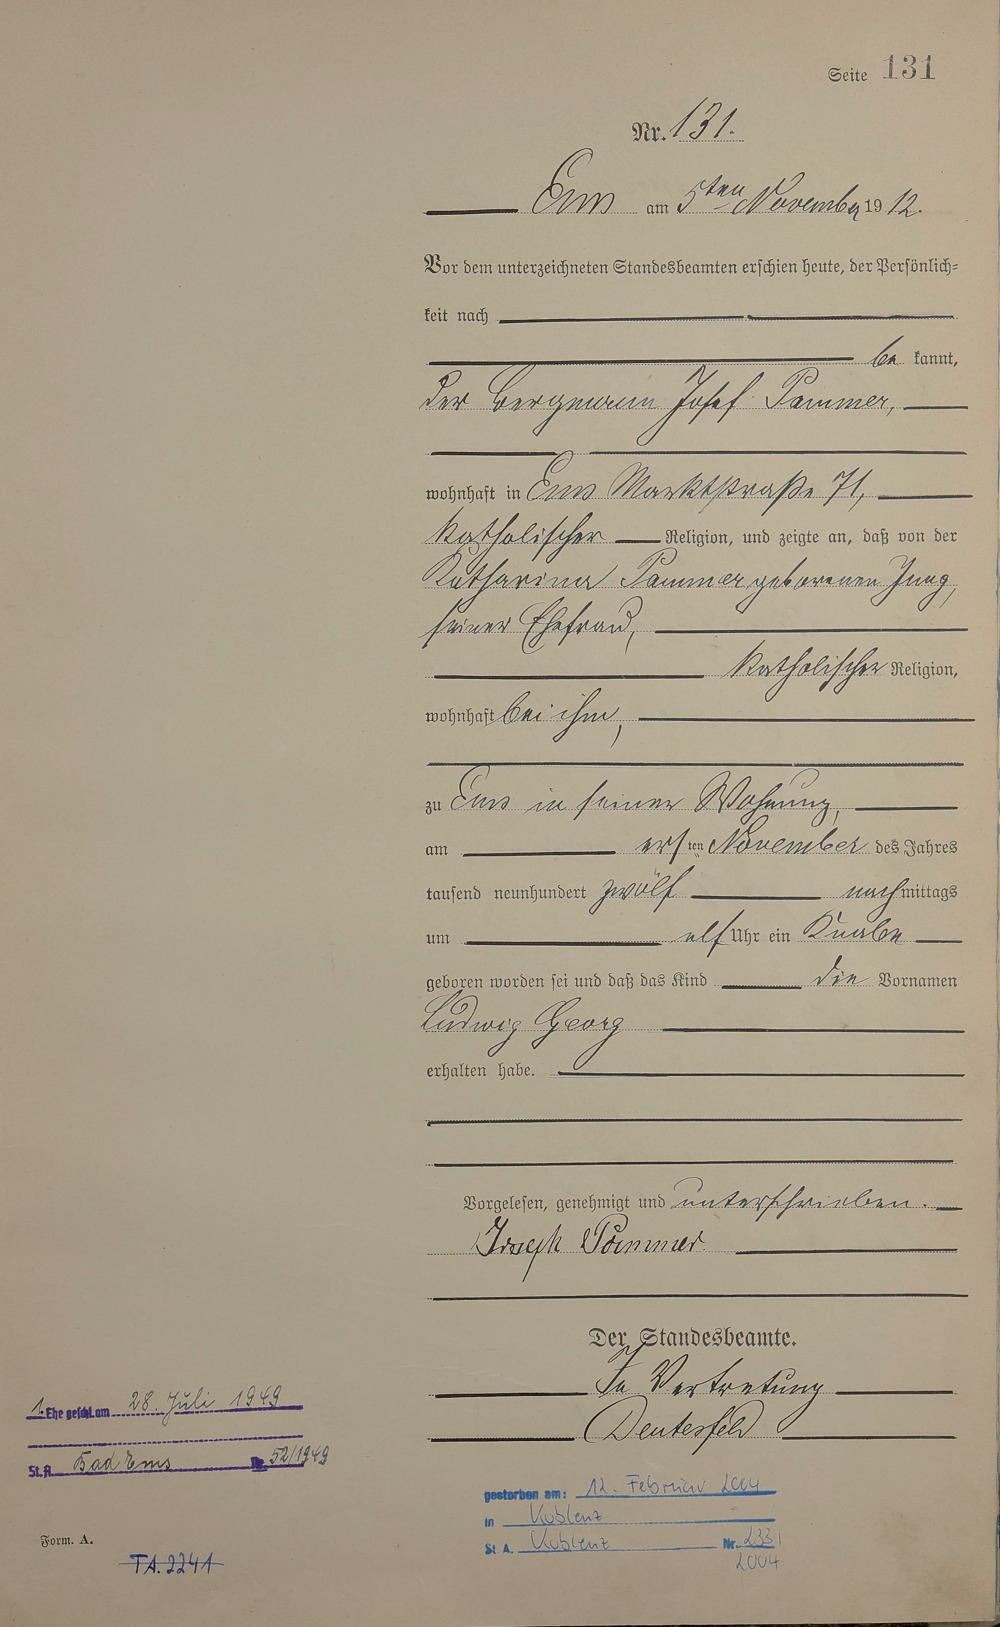 Seite 131
Nr. 131.
Ems am 5ten November 1912.
Vor dem unterzeichneten Standesbeamten erschien heute, der Persönlich-
keit nach
be kannt,
der Bergmann Josef Pammer,
wohnhaft in Ems Marktstraße 71,
katholischer Religion, und zeigte an, daß von der
Katharina Pammer geborenen Jung,
seiner Ehefrau,
katholischer Religion,
wohnhaft bei ihm,
zu Ems in seiner Wohnung,
am ersten November des Jahres
tausend neunhundert zwölf nachmittags
um elf Uhr ein Knabe
geboren worden sei und daß das Kind die Vornamen
Ludwig Georg
erhalten habe.
Vorgelesen, genehmigt und unterschrieben.
Joseph Pammer
Der Standesbeamte.
In Vertretung
1. Ehe geschl. am 28. Juli 1949
St.A. Bad Ems Nr. 52/1949
gestorben am: 12. Februar 2004
in Koblenz
St A. Koblenz Nr. 233
2004
Form. A.
TA. 2241